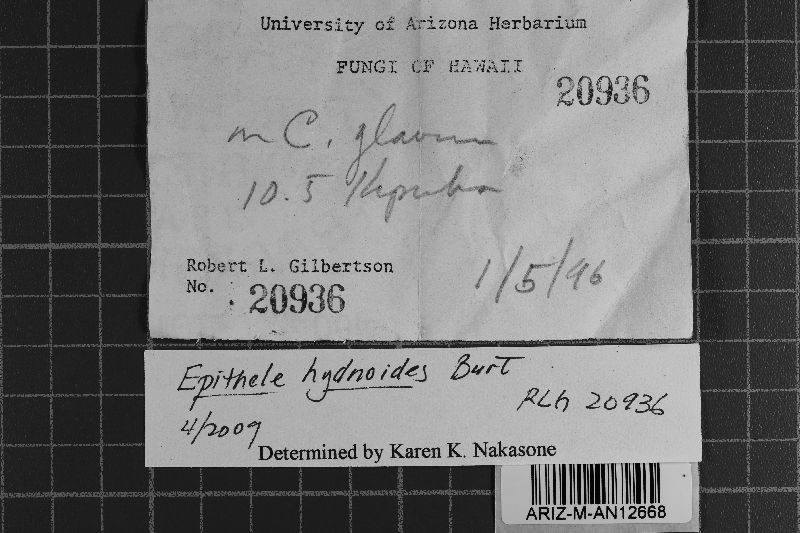 University of Arizona Herbarium
FUNGI OF HAWAII
20936
C.
10.5
Robert L. Gilbertson
No. 20936
1/5/96
Epithele hydnoides Burt
RLG 20936
4/2009
Determined by Karen K. Nakasone
ARIZ-M-AN12668